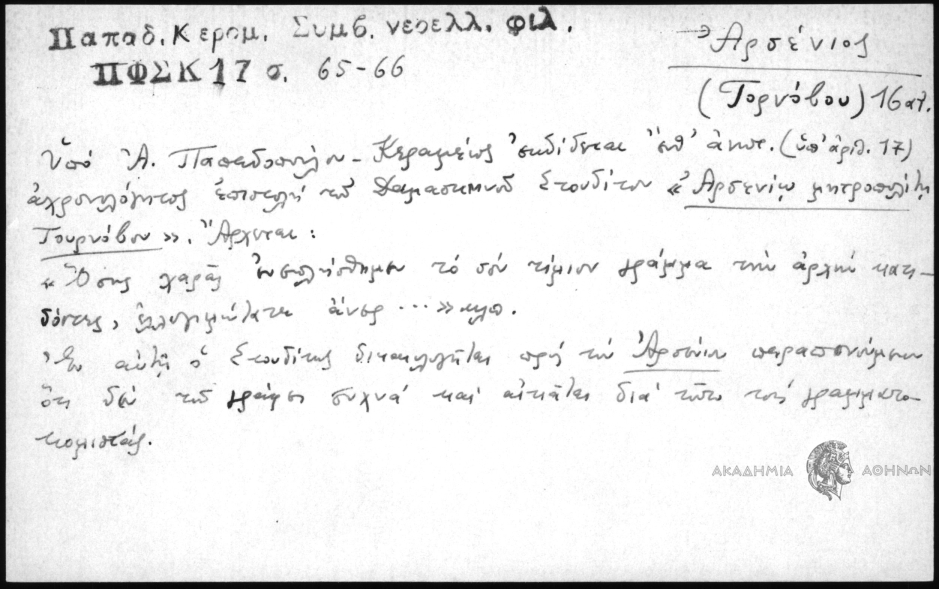 Παπαδ. Κεραμ. Συμβ. νεοελλ. φιλ.
ΠΦΣΚ 17 σ. 65-66
Ἀρσένιος
(Τορνόβου) 16 αἰ.
Ὑπό Ἀ. Παπαδοπούλου-Κεραμέως ἐκδίδεται ἐνθ' ἀνωτ. (ὑπ' ἀριθ. 17)
ἀχρονολόγητος ἐπιστολή τοῦ Δαμασκηνοῦ Στουδίτου «Ἀρσενίῳ μητροπολίτῃ
Τουρνόβου». Ἄρχεται:
«Ὅσης χαρᾶς ἐνεπλήσθημεν τό σόν τίμιον γράμμα τήν ἀρχήν κατι-
δόντες, ἐλλογιμώτατε ἄνερ ...» κλπ.
Ἐν αὐτῇ ὁ Στουδίτης δικαιολογεῖται πρός τόν Ἀρσένιον παραπονούμενον
ὅτι δέν τοῦ γράφει συχνά καί αἰτιᾶται διά τοῦτο τούς γραμματο-
κομιστάς.
ΑΚΑΔΗΜΙΑ ΑΘΗΝΩΝ